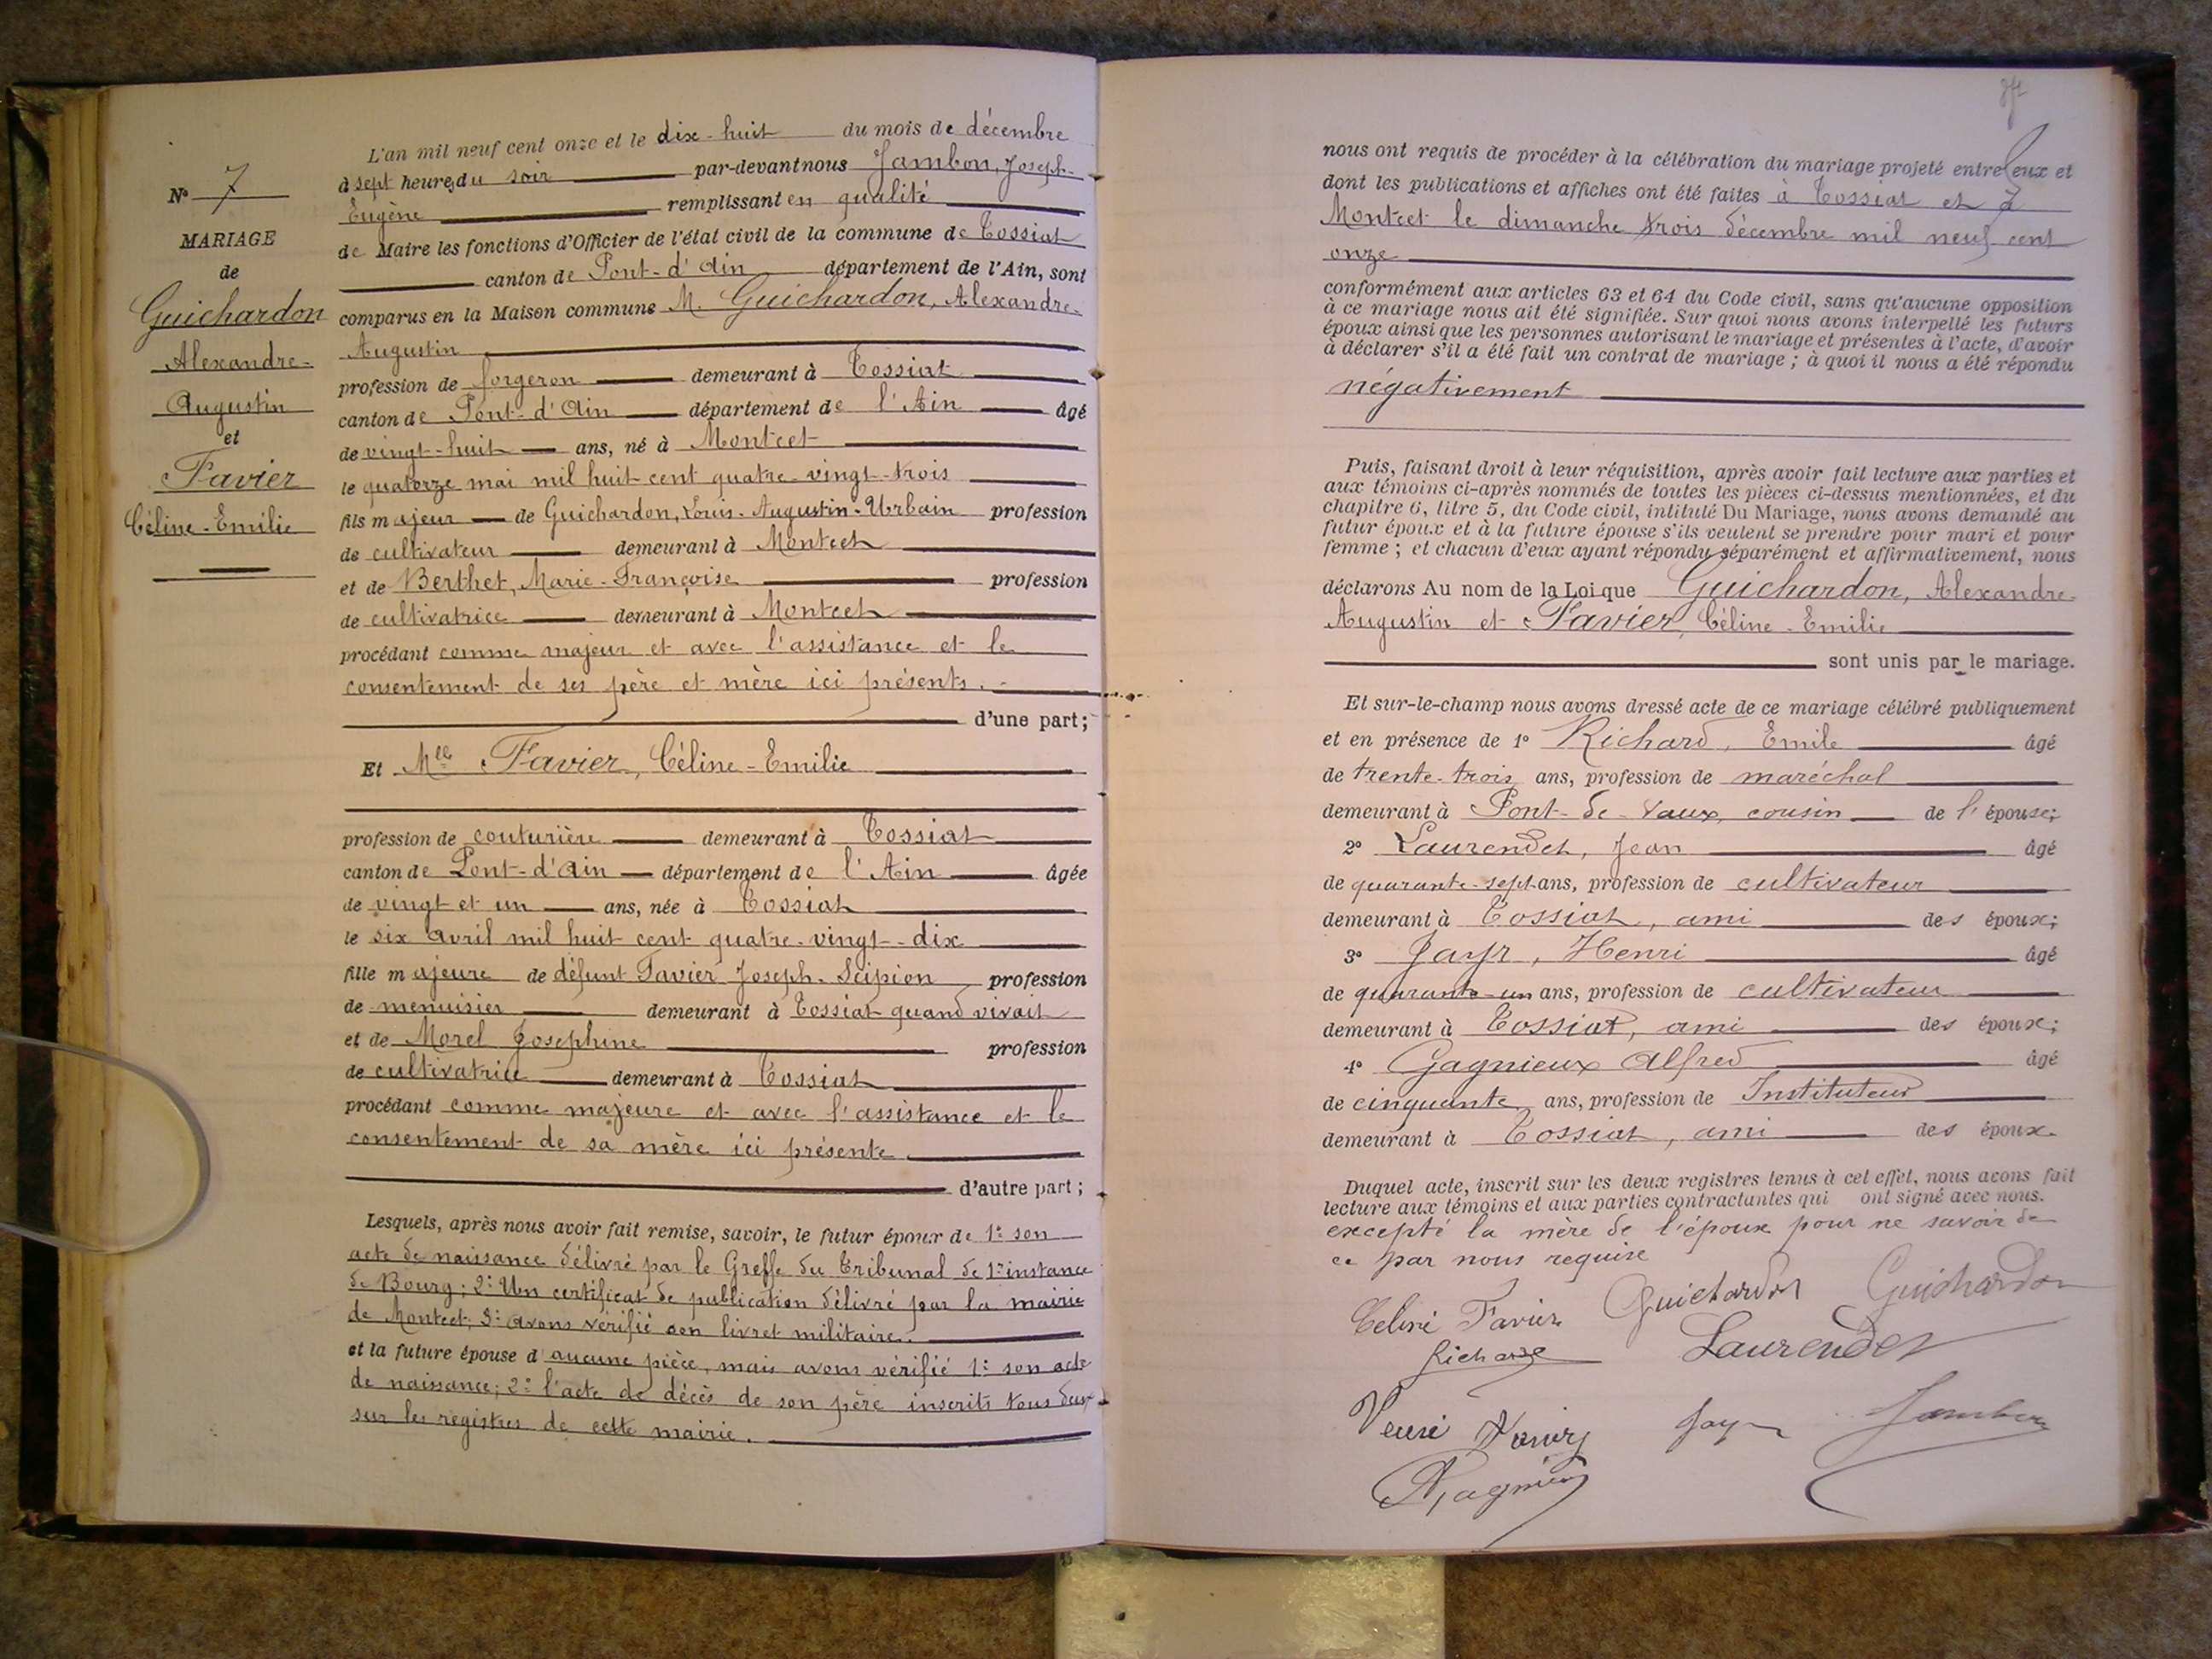 L'an mil neuf cent onze et le dix-huit du mois de décembre
à sept heures du soir par-devant nous Jambon, Joseph-
Eugène remplissant en qualité
de Maire les fonctions d'Officier de l'état civil de la commune de Tossiat
canton de Pont-d'Ain département de l'Ain, sont
comparus en la Maison commune M. Guichardon, Alexandre-
Augustin
profession de forgeron demeurant à Tossiat
canton de Pont-d'Ain département de l'Ain âgé
de vingt-huit ans, né à Montcet
le quatorze mai mil huit cent quatre-vingt-trois
fils majeur de Guichardon, Louis-Augustin-Urbain profession
de cultivateur demeurant à Montcet
et de Berthet, Marie-Françoise profession
de cultivatrice demeurant à Montcet
procédant comme majeur et avec l'assistance et le
consentement de ses père et mère ici présents.
d'une part;
Et Mlle Favier, Céline-Emilie
profession de couturière demeurant à Tossiat
canton de Pont-d'Ain département de l'Ain âgée
de vingt et un ans, née à Tossiat
le six avril mil huit cent quatre-vingt-dix
fille majeure de défunt Favier Joseph-Scipion profession
de menuisier demeurant à Tossiat quand vivait
et de Morel Josephine profession
de cultivatrice demeurant à Tossiat
procédant comme majeure et avec l'assistance et le
consentement de sa mère ici présente.
d'autre part;
Lesquels, après nous avoir fait remise, savoir, le futur époux de 1° son
acte de naissance délivré par le Greffe du Tribunal de 1re instance
de Bourg; 2° Un certificat de publication délivré par la mairie
de Montcet; 3° avons vérifié son livret militaire.
et la future épouse d'aucune pièce, mais avons vérifié 1° son acte
de naissance; 2° l'acte de décès de son père inscrits tous deux
sur les registres de cette mairie.
N° 7
MARIAGE
de
Guichardon
Alexandre-
Augustin
et
Favier
Céline-Emilie
nous ont requis de procéder à la célébration du mariage projeté entre eux et
dont les publications et affiches ont été faites à Tossiat et à
Montcet le dimanche trois décembre mil neuf cent
onze
conformément aux articles 63 et 64 du Code civil, sans qu'aucune opposition
à ce mariage nous ait été signifiée. Sur quoi nous avons interpellé les futurs
époux ainsi que les personnes autorisant le mariage et présentes à l'acte, d'avoir
à déclarer s'il a été fait un contrat de mariage; à quoi il nous a été répondu
négativement
Puis, faisant droit à leur réquisition, après avoir fait lecture aux parties et
aux témoins ci-après nommés de toutes les pièces ci-dessus mentionnées, et du
chapitre 6, titre 5, du Code civil, intitulé Du Mariage, nous avons demandé au
futur époux et à la future épouse s'ils veulent se prendre pour mari et pour
femme; et chacun d'eux ayant répondu séparément et affirmativement, nous
déclarons Au nom de la Loi que Guichardon, Alexandre-
Augustin et Favier, Céline-Emilie
sont unis par le mariage.
Et sur-le-champ nous avons dressé acte de ce mariage célébré publiquement
et en présence de 1° Richard, Emile âgé
de trente-trois ans, profession de maréchal
demeurant à Pont-de-Vaux, cousin de l'épouse;
2° Laurendet, Jean âgé
de quarante-sept ans, profession de cultivateur
demeurant à Tossiat, ami des époux;
3° Jayr, Henri âgé
de quarante-un ans, profession de cultivateur
demeurant à Tossiat, ami des époux;
4° Gagnieux Alfred âgé
de cinquante ans, profession de Instituteur
demeurant à Tossiat, ami des époux.
Duquel acte, inscrit sur les deux registres tenus à cet effet, nous avons fait
lecture aux témoins et aux parties contractantes qui ont signé avec nous.
excepté la mère de l'époux pour ne savoir de
ce par nous requise
Celine Favier Guichardon Guichardon
Richard Laurendet
Jayr Jambon